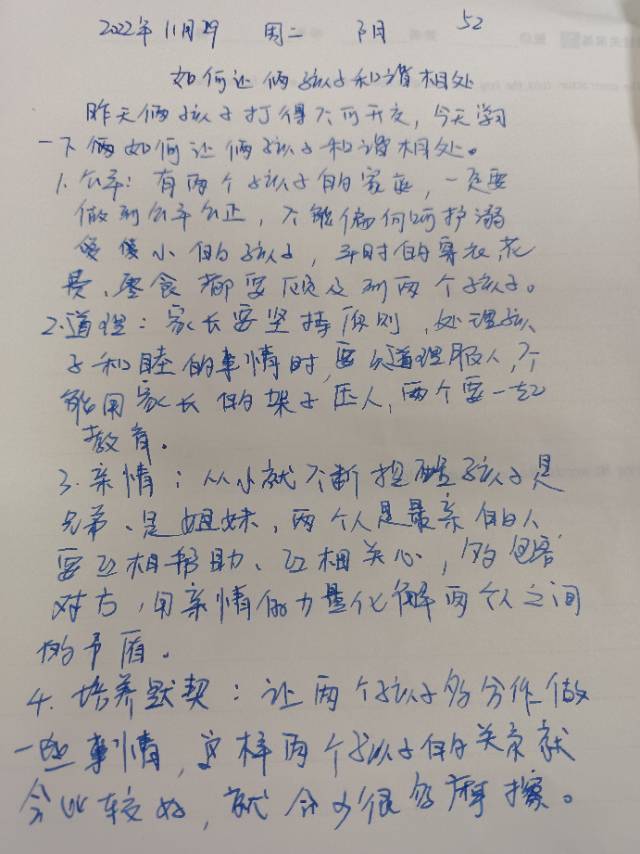 2022年11月29 周二 阴 52
如何让俩孩子和谐相处
昨天俩孩子打得不可开交,今天学习
一下俩如何让俩孩子和谐相处。
1.公平:有两个孩子的家庭,一定要
做到公平公正,不能偏向呵护溺
爱小的孩子,平时的穿衣花
费、零食都要顾及到两个孩子。
2.道理:家长要坚持原则,处理孩
子和睦的事情时,要以道理服人,不
能用家长的架子压人,两个要一起
教育。
3.亲情:从小就不断提醒孩子是
兄弟、是姐妹,两个人是最亲的人
要互相帮助、互相关心,多包容
对方,用亲情的力量化解两个人之间
的矛盾。
4.培养默契:让两个孩子多合作做
一些事情,这样两个孩子的关系就
会比较好,就会少很多摩擦。